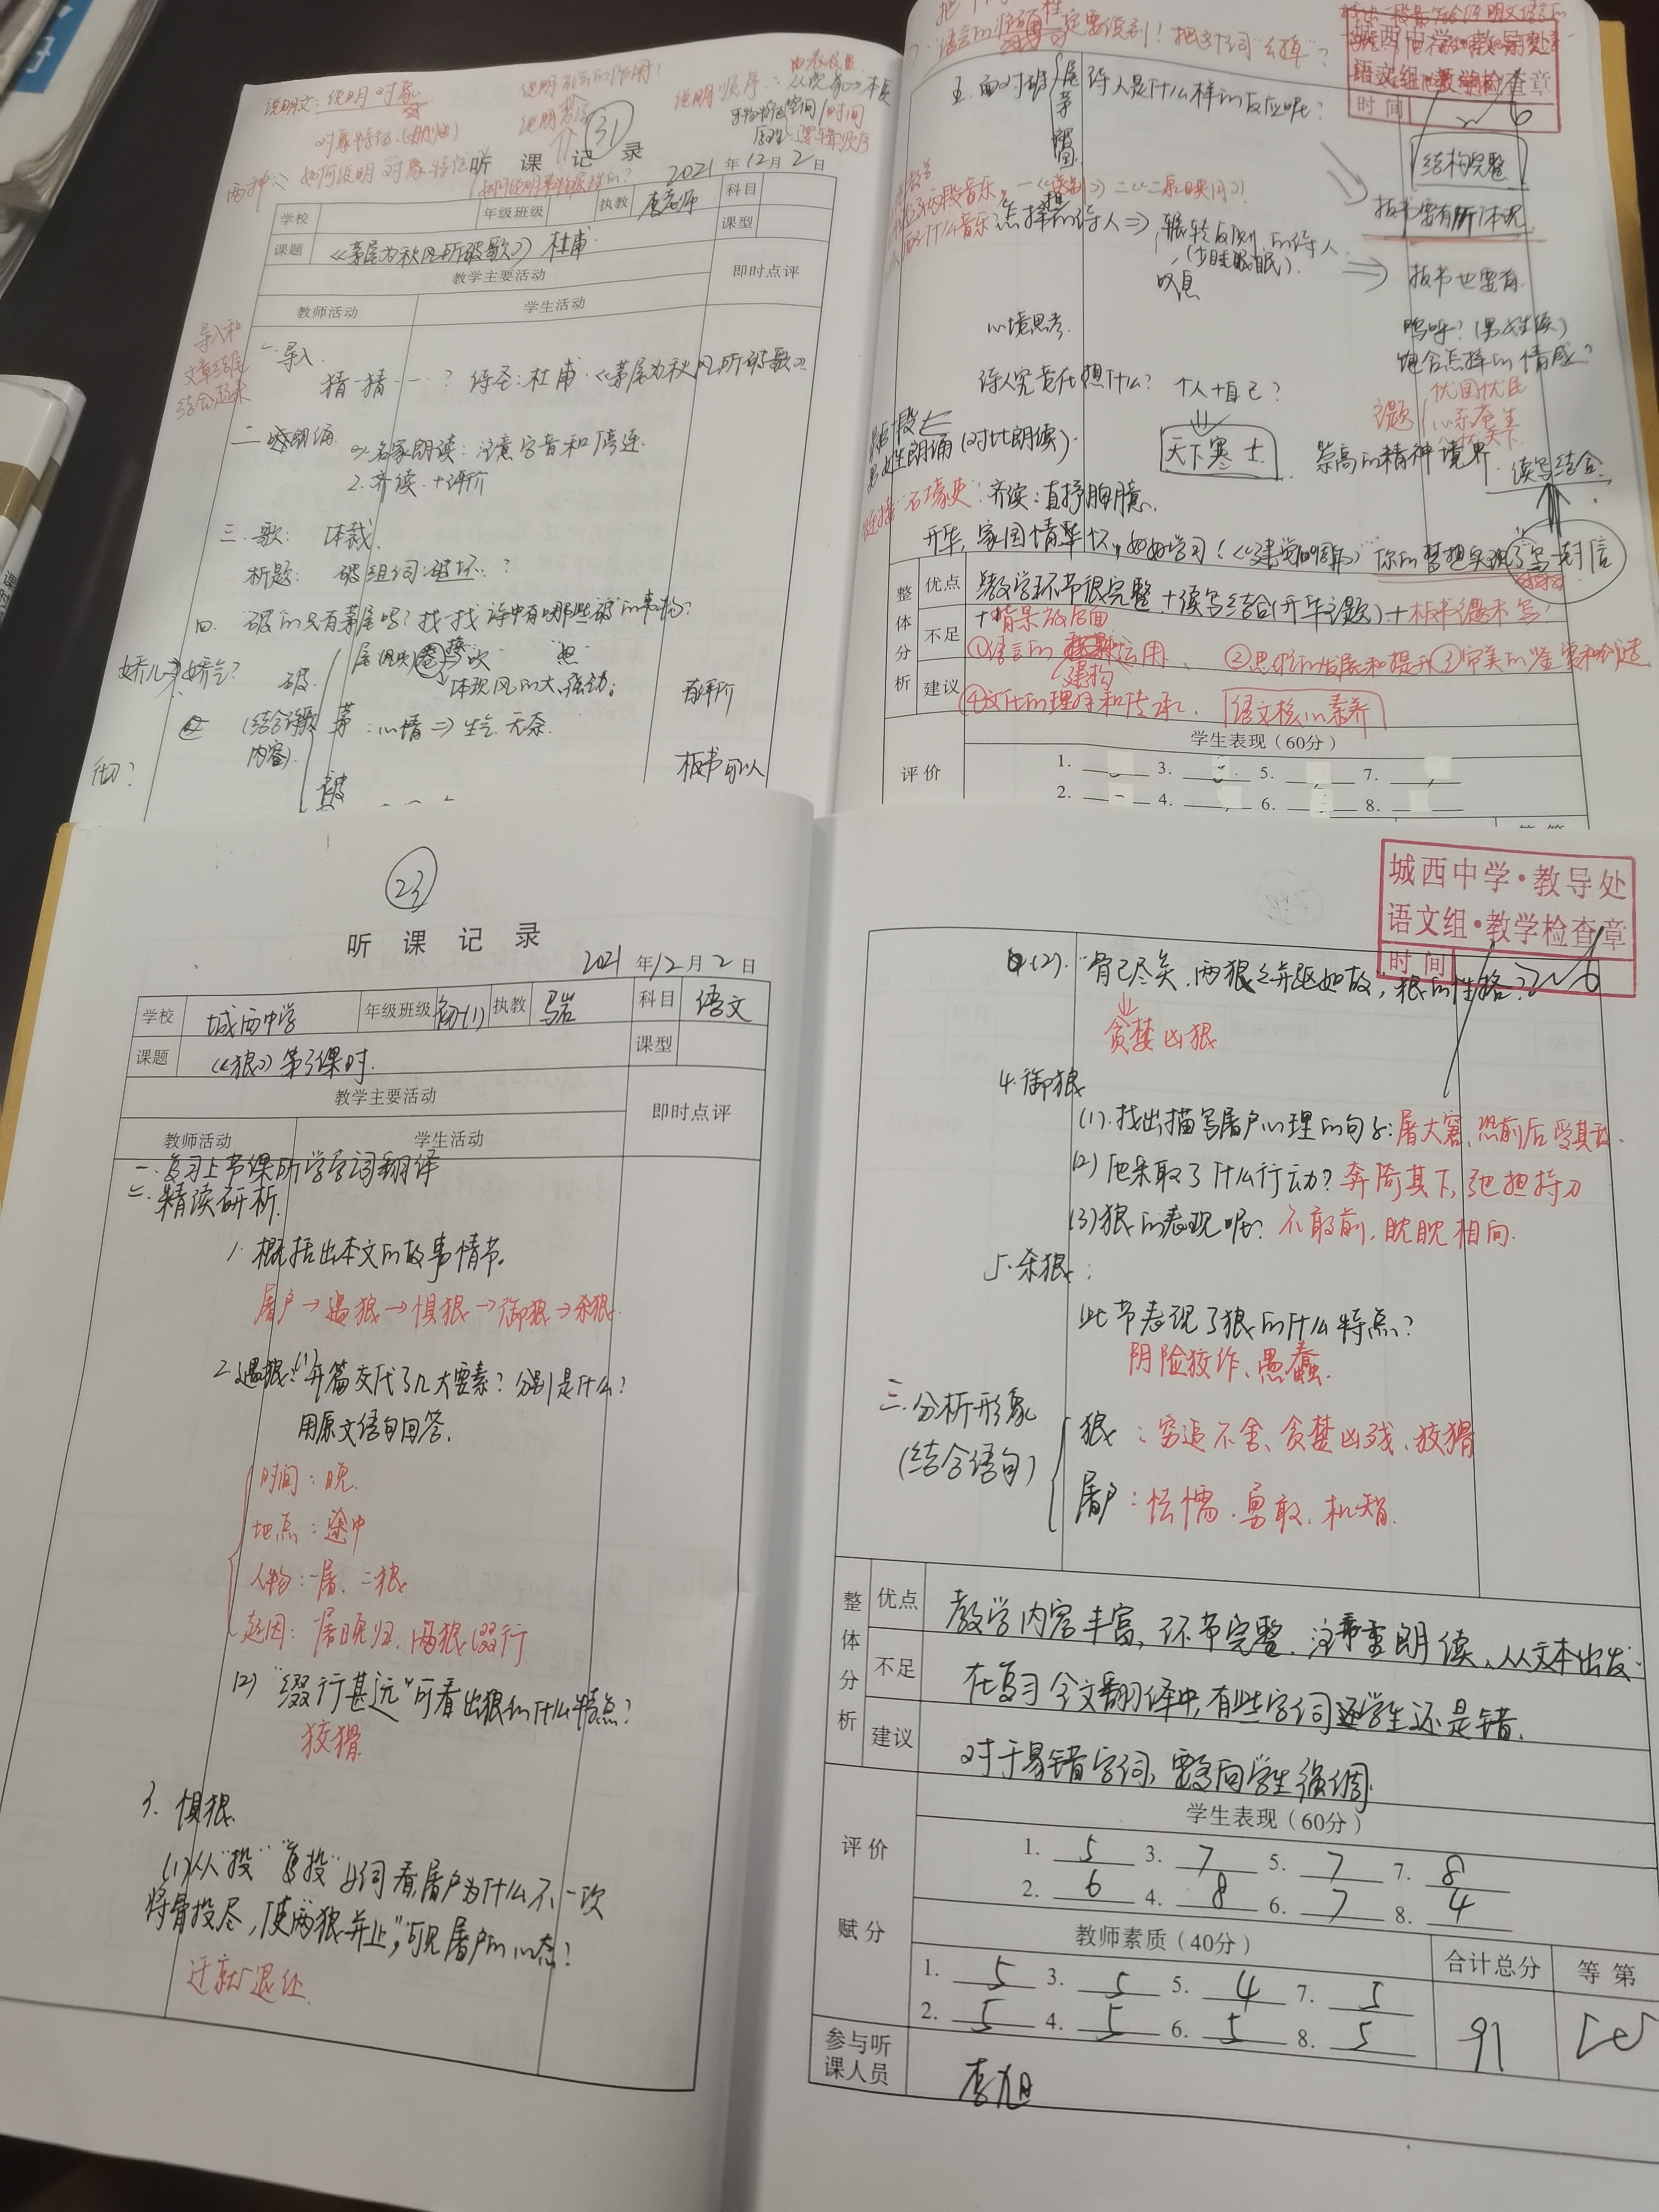 说明文：说明对象
说明方法的作用！
说明顺序：
听 课 记 录
31
2021 年 12 月 2 日
学校
年级班级
执教
唐老师
科目
课题
《茅屋为秋风所破歌》 杜甫
课型
教学主要活动
即时点评
教师活动
学生活动
导入和
文章结尾
结合起来
一导入
猜一猜 ？ 诗圣：杜甫·《茅屋为秋风所破歌》
朗诵
名家朗读：注意字音和停连
2. 齐读 + 评价
三. 歌： 体裁
析题： 破组词：破坏 ？
四. 破的只有茅屋吗？找一找诗中有哪些“破”的事物？
体现风的大，强劲；
有评价
(结合诗歌
内容)
茅：心情⇒生气 无奈
板书可以
城西中学·教导处
语文组·教学检查章
时间
诗人是什么样的反应呢？
结构完整
板书要有所体现
辗转反侧的诗人
(少睡眠)
叹息
板书也要有
心境思考
呜呼？(男女生读)
饱含怎样的情感？
诗人究竟在想什么？ 个人+自己？
忧国忧民
主题
天下寒士
崇高的精神境界
读写结合
朗诵(对比朗读)
“石壕吏” 齐读：直抒胸臆
写一封信
整体分析
优点
教学环节很完整+读写结合(升华主题)+板书课未写！
不足
+背景放后面
①语言的建构运用、②思维的发展和提升③审美的鉴赏和创造
建议
④文化的理解和传承、语文核心素养
学生表现（60分）
评 价
1.
3.
5.
7.
2.
4.
6.
8.
23
听 课 记 录
2021 年 12 月 2 日
学校
城西中学
年级班级
初一(1)
执教
马岩
科目
语文
课题
《狼》第3课时
课型
教学主要活动
即时点评
教师活动
学生活动
一. 复习上节课所学字词翻译
二. 精读研析
1. 概括出本文的故事情节。
屠户→遇狼→惧狼→御狼→杀狼
2. 遇狼：(1)开篇交代了几大要素？分别是什么？
用原文语句回答。
时间：晚
地点：途中
人物：一屠、二狼
起因：屠晚归，两狼缀行
(2) “缀行甚远”可看出狼的什么特点？
狡猾
3. 惧狼
(1)从“投”“复投”等词看，屠户为什么不一次
将骨投尽，使两狼并止”，可见屠户的心态？
迁就、退让
城西中学·教导处
语文组·教学检查章
时间
(2). “骨已尽矣，两狼之并驱如故”，狼的性格？
贪婪凶狠
4. 御狼
(1). 找出描写屠户心理的句子：屠大窘，恐前后受其敌
(2) 他采取了什么行动？奔倚其下，弛担持刀
(3)狼的表现呢？不敢前，眈眈相向.
5. 杀狼：
此节表现了狼的什么特点？
阴险狡诈、愚蠢.
三. 分析形象
(结合语句)
狼：穷追不舍、贪婪凶残、狡猾
屠户：怯懦、勇敢、机智.
整体分析
优点
教学内容丰富，环节完整，注重朗读、从文本出发
不足
在复习全文翻译中，有些字词学生还是错.
建议
对于易错字词，要多向学生强调.
学生表现（60分）
评 价
1. 5 3. 7 5. 7 7. 8
2. 6 4. 8 6. 7 8. 4
赋 分
教师素质（40分）
合计总分
等 第
1. 5 3. 5 5. 4 7. 5
2. 5 4. 5 6. 5 8. 5
91
参与听
课人员
李旭